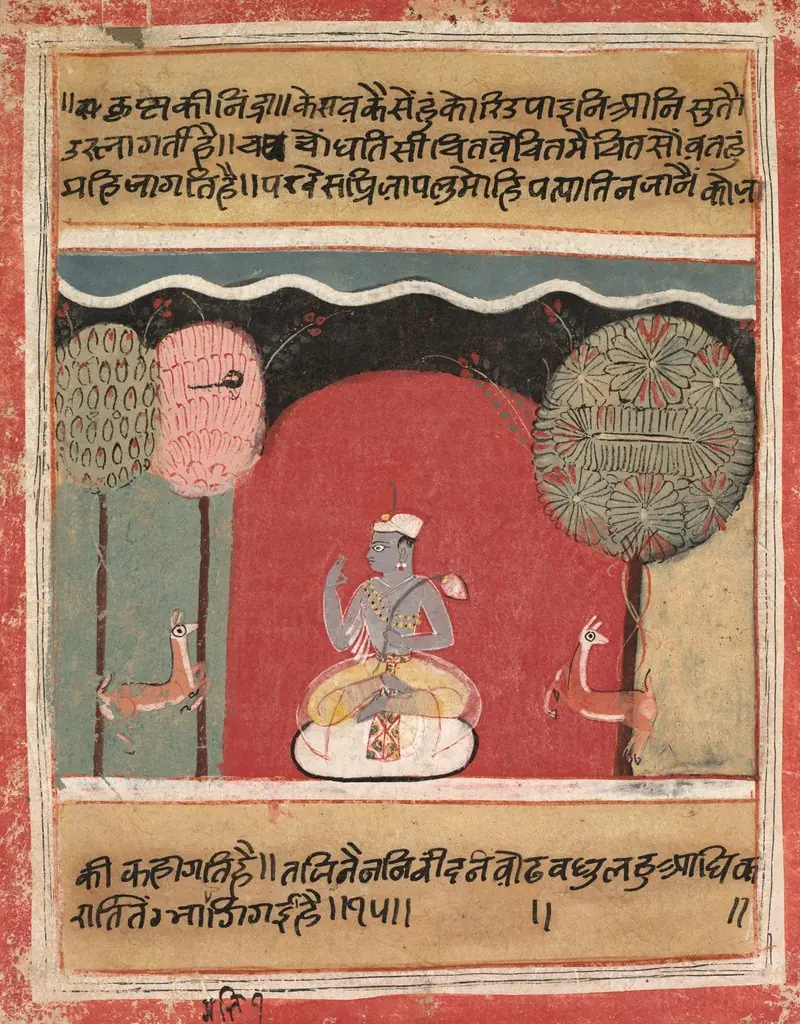 ॥ कृष्न की निंद्रा॥ केसव कैसें हुं कोरि उपाइनि आनि सु तै
उर लागती है॥ चौंधति सी चितवै चित मै चित सोंवत हुं
महि जागति है॥ परदेस प्रिआ पलु मोहि पत्याति न जानै को जा
की कहा गति है॥ तजि नैननि नीद नवोढ वधु लहु आधिक
राति तें भाजि गई है॥१५॥ ॥ ॥